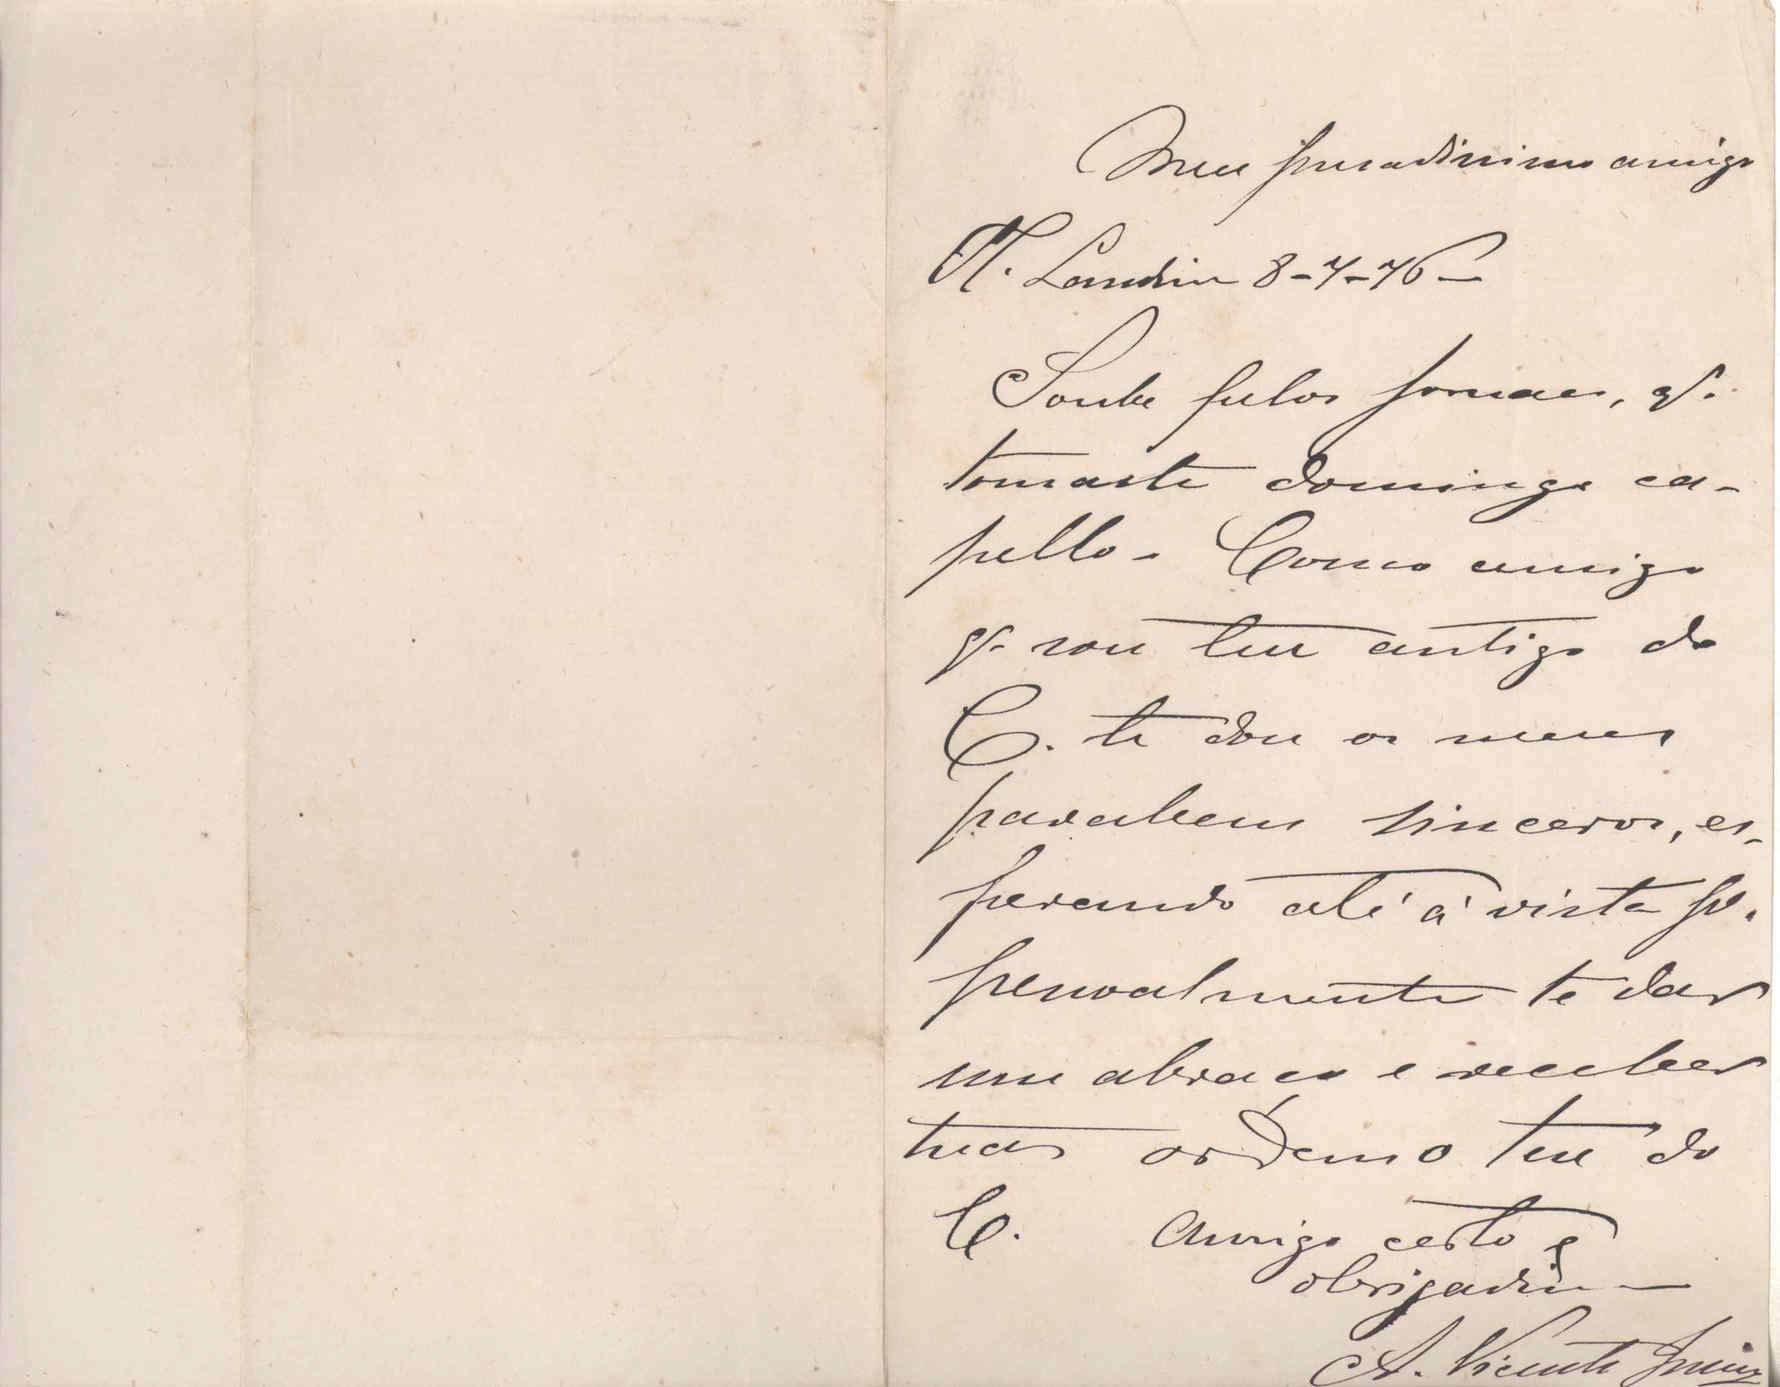 Meu presadissimo amigo
N. Landim 8-7-76-
Soube pelos jornaes, q.
tomaste domingo ca-
pello- Como amigo
q. sou teu antigo do
C. te dou os meus
parabens sinceros, es-
perando até á vista p.
pessoalmente te dar
um abraço e receber
tuas ordens o teu do
C. Amigo certo e
obrigadis-
A. Vicente